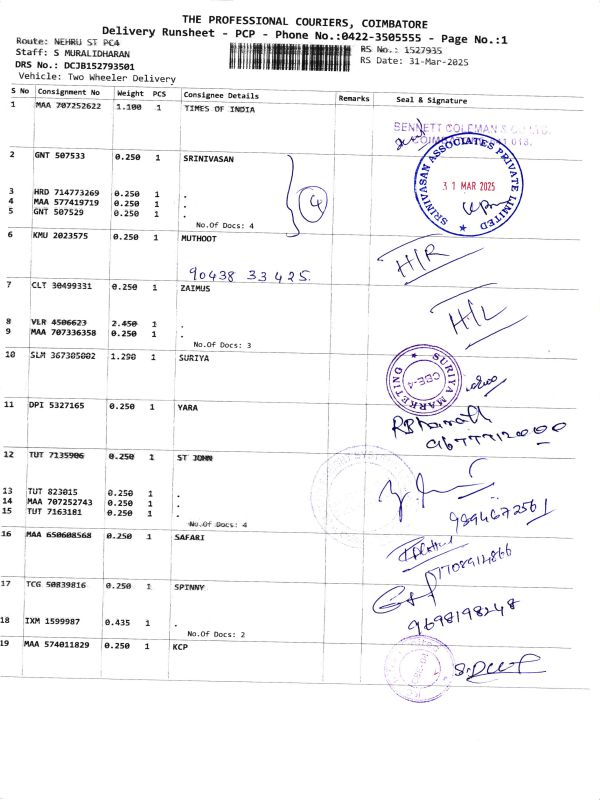 THE PROFESSIONAL COURIERS, COIMBATORE
Delivery Runsheet - PCP - Phone No.:0422-3505555 - Page No.:1
Route: NEHRU ST PC4
RS No.: 1527935
Staff: S MURALIDHARAN
RS Date: 31-Mar-2025
DRS No.: DCJB152793501
Vehicle: Two Wheeler Delivery
S No Consignment No Weight PCS Consignee Details Remarks Seal & Signature
1 MAA 707252622 1.100 1 TIMES OF INDIA
BENNETT COLEMAN & CO LTD.
2 GNT 507533 0.250 1 SRINIVASAN
SRINIVASAN ASSOCIATES PRIVATE LIMITED
31 MAR 2025
3 HRD 714773269 0.250 1 .
4 MAA 577419719 0.250 1 .
5 GNT 507529 0.250 1 .
4
No.Of Docs: 4
6 KMU 2023575 0.250 1 MUTHOOT
H/R
90438 33425.
7 CLT 30499331 0.250 1 ZAIMUS
H/L
8 VLR 4506623 2.450 1 .
9 MAA 707336358 0.250 1 .
No.Of Docs: 3
10 SLM 367305002 1.290 1 SURIYA
SURIYA MARKETING
CBE-4
11 DPI 5327165 0.250 1 YARA
96777120000
12 TUT 7135906 0.250 1 ST JOHN
13 TUT 823015 0.250 1 .
14 MAA 707252743 0.250 1 .
15 TUT 7163181 0.250 1 .
9894672561
No.Of Docs: 4
16 MAA 650608568 0.250 1 SAFARI
7708914866
17 TCG 50839816 0.250 1 SPINNY
9698198248
18 IXM 1599987 0.435 1 .
No.Of Docs: 2
19 MAA 574011829 0.250 1 KCP